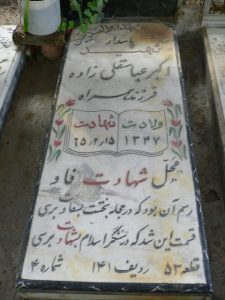 پاسدار
شهید
اکبر عباسقلی زاده
فرزند سراه
ولادت شهادت
۱۳۴۷ ۶۵/۲/۱۵
محل شهادت فاو
رسم آن بود که در حجله بتخت برسی
قسمت این شد که در سنگر اسلام بشهادت برسی
قطعه ۵۳ ردیف ۱۴۱ شماره ۴